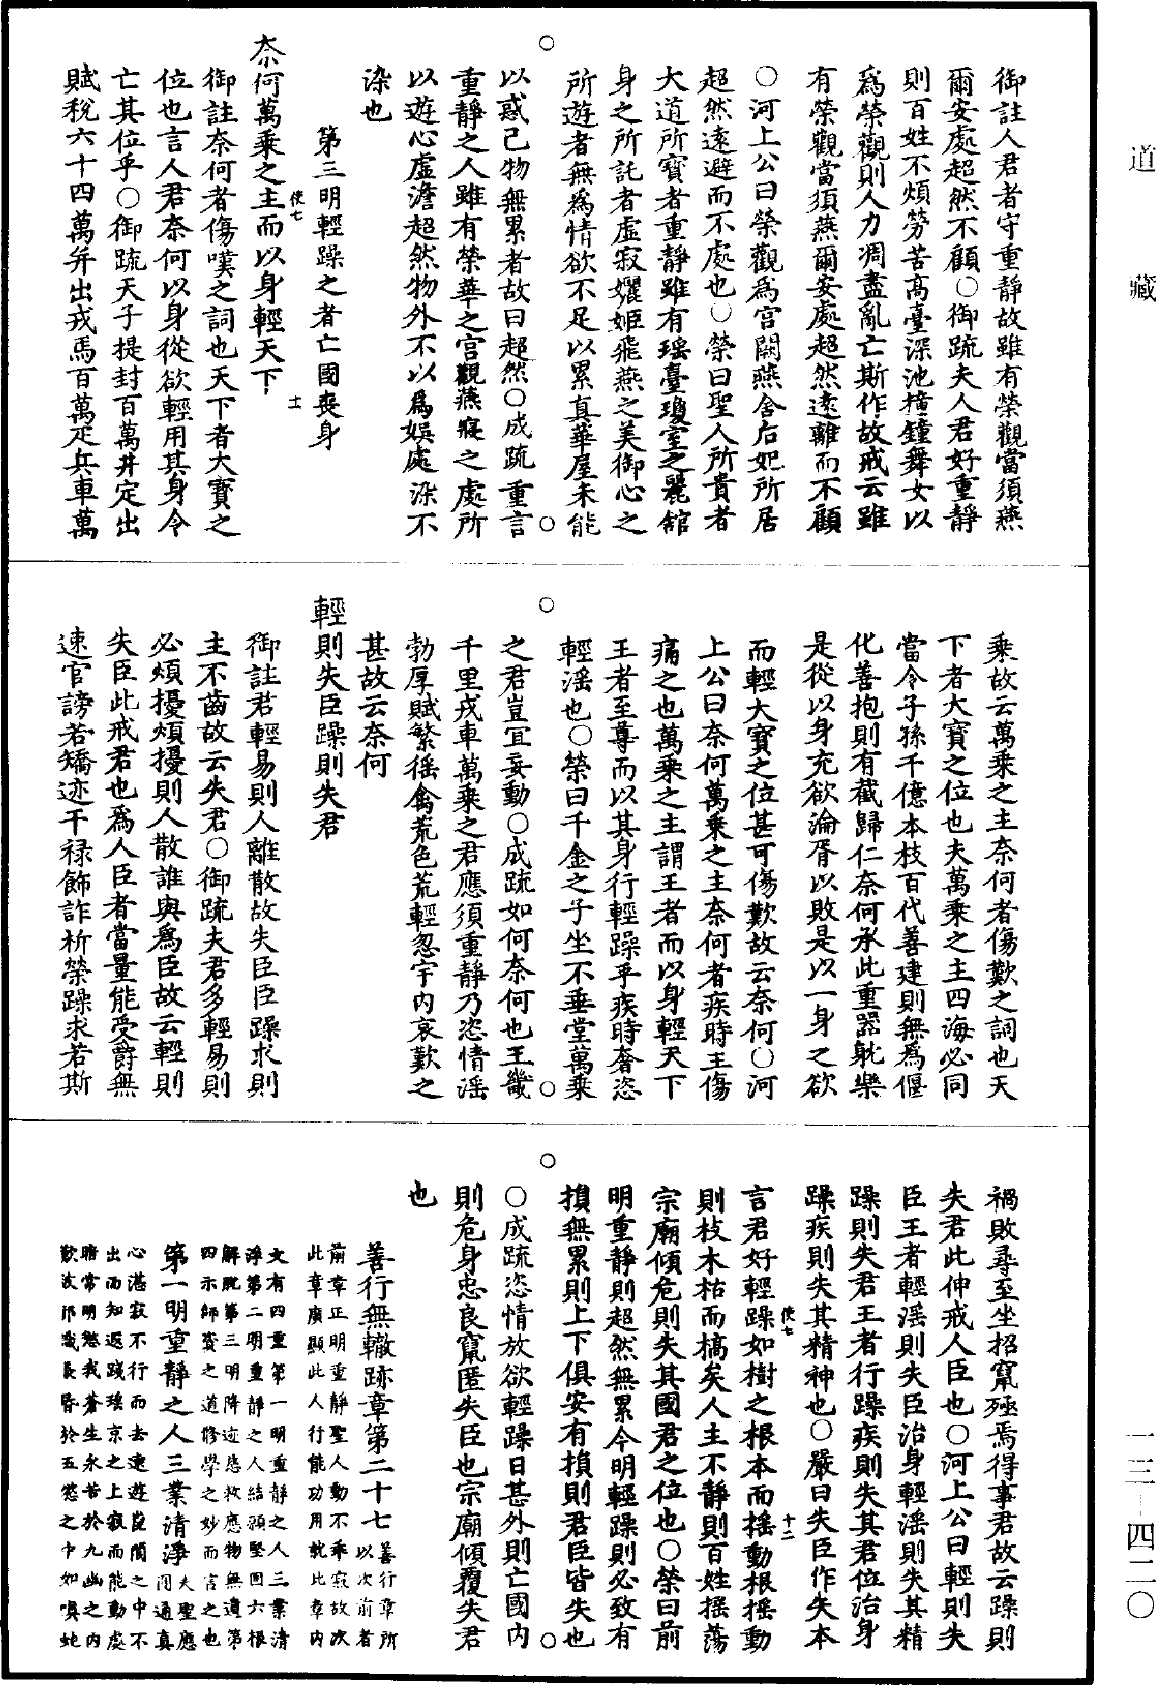 道藏
御註人君者守重靜故雖有榮觀當須燕
爾安處超然不顧○御疏夫人君好重靜
則百姓不煩勞苦高臺深池撞鐘舞女以
爲榮觀則人力凋盡亂亡斯作故戒云雖
有榮觀當須燕爾安處超然遠離而不顧
○河上公曰榮觀爲宮闕燕舍后妃所居
超然遠避而不處也○榮曰聖人所貴者
大道所寶者重靜雖有瑤臺瓊室之麗館
身之所託者虛寂孋姬飛燕之美御心之
所遊者無爲情欲不足以累真華屋未能
以惑己物無累者故曰超然○成疏重言
重靜之人雖有榮華之宮觀燕寢之處所
以遊心虛澹超然物外不以爲娛處染不
染也
第三明輕躁之者亡國喪身
奈何萬乘之主而以身輕天下
使七 十一
御註奈何者傷嘆之詞也天下者大寶之
位也言人君奈何以身從欲輕用其身令
亡其位乎○御疏天子提封百萬井定出
賦稅六十四萬井出戎馬百萬疋兵車萬
乘故云萬乘之主奈何者傷歎之詞也天
下者大寶之位也夫萬乘之主四海必同
當令子孫千億本枝百代善建則無爲偃
化善抱則有截歸仁奈何承此重器躭樂
是從以身充欲淪胥以敗是以一身之欲
而輕大寶之位甚可傷歎故云奈何○河
上公曰奈何萬乘之主奈何者疾時王傷
痛之也萬乘之主謂王者而以身輕天下
王者至尊而以其身行輕躁乎疾時奢恣
輕淫也○榮曰千金之子坐不垂堂萬乘
之君豈宜妄動○成疏如何奈何也王畿
千里戎車萬乘之君應須重靜乃恣情淫
勃厚賦繁徭禽荒色荒輕忽宇內哀歎之
甚故云奈何
輕則失臣躁則失君
御註君輕易則人離散故失臣臣躁求則
主不齒故云失君○御疏夫君多輕易則
必煩擾煩擾則人散誰與爲臣故云輕則
失臣此戒君也爲人臣者當量能受爵無
速官謗若矯迹干祿飾詐析榮躁求若斯
禍敗尋至坐招竄殛焉得事君故云躁則
失君此伸戒人臣也○河上公曰輕則失
臣王者輕淫則失臣治身輕淫則失其精
躁則失君王者行躁疾則失其君位治身
躁疾則失其精神也○嚴曰失臣作失本
言君好輕躁如樹之根本而搖動根搖動
使七 十二
則枝木枯而槁矣人主不靜則百姓搖蕩
宗廟傾危則失其國君之位也○榮曰前
明重靜則超然無累今明輕躁則必致有
損無累則上下俱安有損則君臣皆失也
○成疏恣情放欲輕躁日甚外則亡國內
則危身忠良竄匿失臣也宗廟傾覆失君
也
善行無轍跡章第二十七善行章所以次前者
前章正明重靜聖人動不乖寂故次
此章廣顯此人行能功用就此章內
文有四重第一明重靜之人三業清
淨第二明重靜之人結願堅固六根
解脫第三明降迹慈救應物無遺第
四示師資之道修學之妙而言之也
第一明重靜之人三業清淨夫聖應
心湛寂不行而去速遊臣閻之中不
出而知遐踐瑤京之上寂而能動處
暗常明愍我蒼生永苦於九幽之內
一三—四二〇